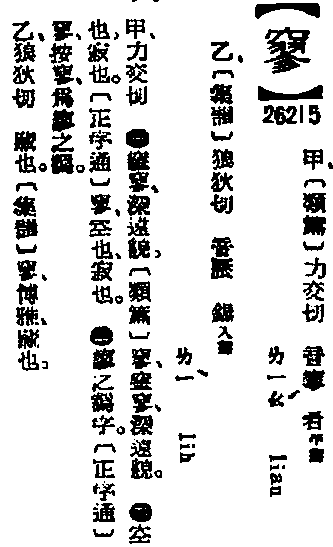 【窷】
26215
甲、〔類篇〕力交切 音寥 看平聲
ㄌㄧㄠˊ liau
乙、〔集韻〕狼狄切 音歷 錫入聲
ㄌㄧˋ lih
甲、力交切 ㊀窲窷、深遠貌。〔類篇〕窷、窲窷、深遠貌。㊁空
也、寂也。〔正字通〕窷、空也、寂也。㊂寥之譌字。〔正字通〕
窷、按窷、爲寥之譌。
乙、狼狄切 藏也。〔集韻〕窷、博雅、藏也。